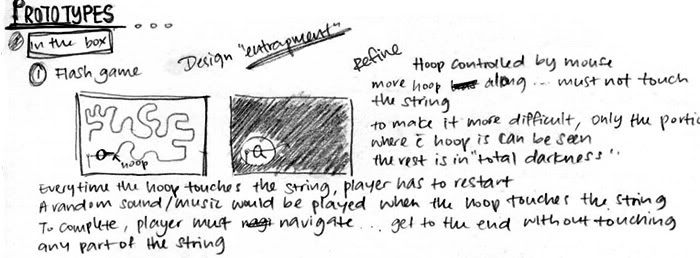 PROTOTYPES ...
in the box
① Flash game
Design "entrapment"
Refine
Hoop controlled by mouse
move hoop along ... must not touch
the string
to make it more difficult, only the portio
where c̄ hoop is can be seen
the rest is in "total darkness".
hoop
Everytime the hoop touches the string, player has to restart
A random sound/music would be played when the hoop touches the string
To complete, player must navigate ... get to the end without touching
any part of the string